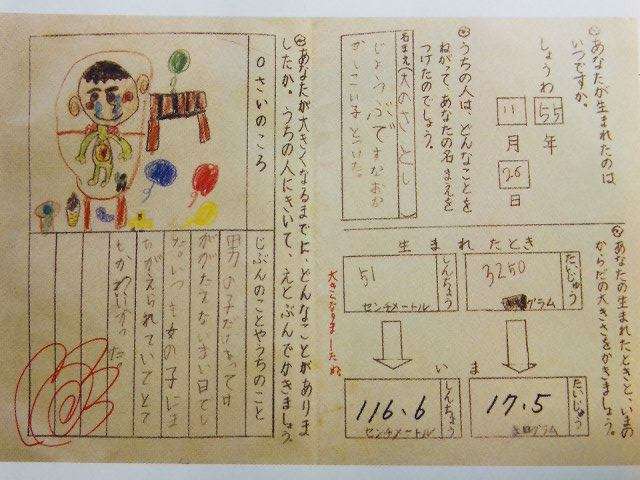 あなたが生まれたのは、
いつですか。
しょうわ 55 年
11 月
26 日
うちの人は、どんなことを
ねがって、あなたの名まえを
つけたのでしょう。
名まえ(大のさとし)
じょうぶで
かしこい子
あなたの生まれたときと、いまの
からだの大きさをかきましょう。
生まれたとき
たいじゅう
3250
グラム
しんちょう
51
センチメートル
いま
たいじゅう
17.5
グラム
しんちょう
116.6
センチメートル
大きくなりましたね
あなたが大きくなるまでに、どんなことがありま
したか。うちの人にきいて、えとぶんでかきましょう
0さいのころ
じぶんのことやうちのこと
男の子だ
いつも女の子にま
ちがえられていてとて
もかわいかった